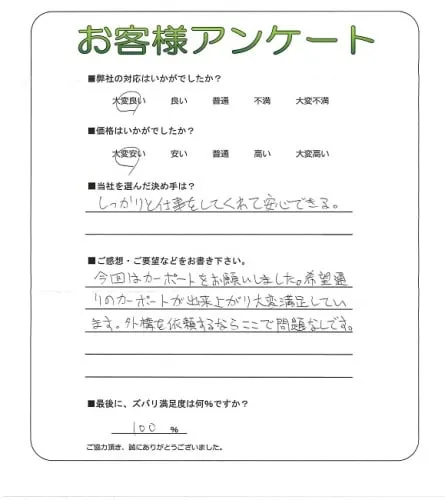 お客様アンケート
■弊社の対応はいかがでしたか？
大変良い 良い 普通 不満 大変不満
■価格はいかがでしたか？
大変安い 安い 普通 高い 大変高い
■当社を選んだ決め手は？
しっかりと仕事をしてくれて安心できる。
■ご感想・ご要望などをお書き下さい。
今回はカーポートをお願いしました。希望通
りのカーポートが出来上がり大変満足してい
ます。外構を依頼するならここで問題なしです。
■最後に、ズバリ満足度は何%ですか？
100 %
ご協力頂き、誠にありがとうございました。